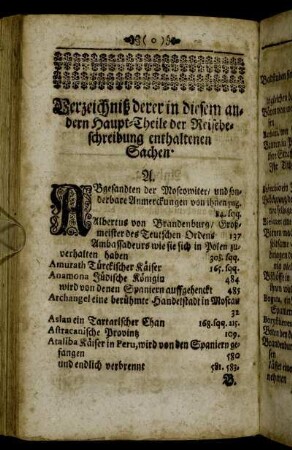 ( o )
Verzeichniß derer in diesem an-
dern Haupt-Theile der Reisebe-
schreibung enthaltenen
Sachen.
A.
ABgesandten der Moscowiter, und son-
derbare Anmerckungen von ihnen pag.
84. sqq.
Albertus von Brandenburg, Groß-
meister des Teutschen Ordens 137
Ambassadeurs wie sie sich in Polen zu
verhalten haben 308. sqq.
Amurath Türckischer Käiser 165. sqq.
Anamona Jüdische Königin 484
wird von denen Spaniern auffgehenckt 485
Archangel eine berühmte Handelstadt in Moscau
32
Aslan ein Tartarischer Chan 168. sqq. 215.
Astracanische Provintz 109.
Ataliba Käiser in Peru, wird von den Spaniern ge-
fangen 580
und endlich verbrennt 581. 583.
B.